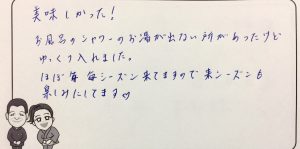 美味しかった!
お風呂のシャワーのお湯が出ない所があったけど
ゆっくり入れました。
ほぼ毎 毎シーズン来てますので来シーズンも
楽しみにしてます♡